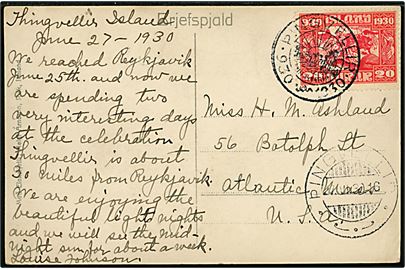 Thingvellir Island
Brjefspjald
June 27 - 1930
We reached Reykjavik
June 25th. and now we
are spending two
very interesting days
at the celebration
Thingvellir is about
30 miles from Reykjavik
We are enjoying the
beautiful light nights
and we will see the mid-
night sun for about a week.
Louise Johnson
Miss H. M. Ashland
56 Botolph St
Atlantic Mass
U.S.A
930 ISLAND 1930
20 AURAR 20